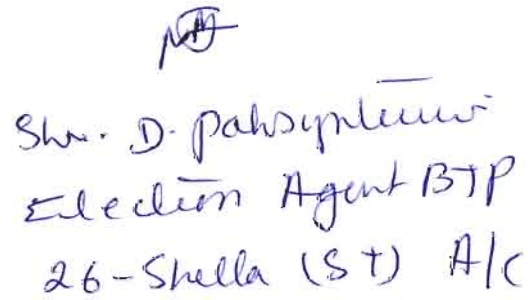 Shr. D. Pahsyntiew
Election Agent BJP
26-Shella (ST) A/C